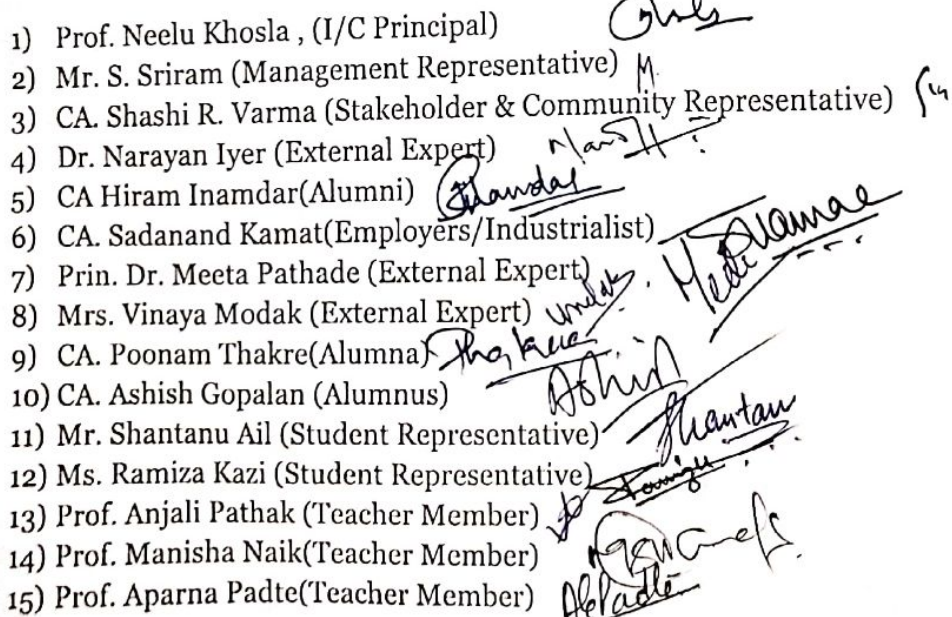 1) Prof. Neelu Khosla , (I/C Principal)
2) Mr. S. Sriram (Management Representative)
3) CA. Shashi R. Varma (Stakeholder & Community Representative)
4) Dr. Narayan Iyer (External Expert)
5) CA Hiram Inamdar(Alumni)
6) CA. Sadanand Kamat(Employers/Industrialist)
7) Prin. Dr. Meeta Pathade (External Expert)
8) Mrs. Vinaya Modak (External Expert)
9) CA. Poonam Thakre(Alumna)
10) CA. Ashish Gopalan (Alumnus) Ashish
11) Mr. Shantanu Ail (Student Representative) Shantanu
12) Ms. Ramiza Kazi (Student Representative)
13) Prof. Anjali Pathak (Teacher Member)
14) Prof. Manisha Naik(Teacher Member)
15) Prof. Aparna Padte(Teacher Member)